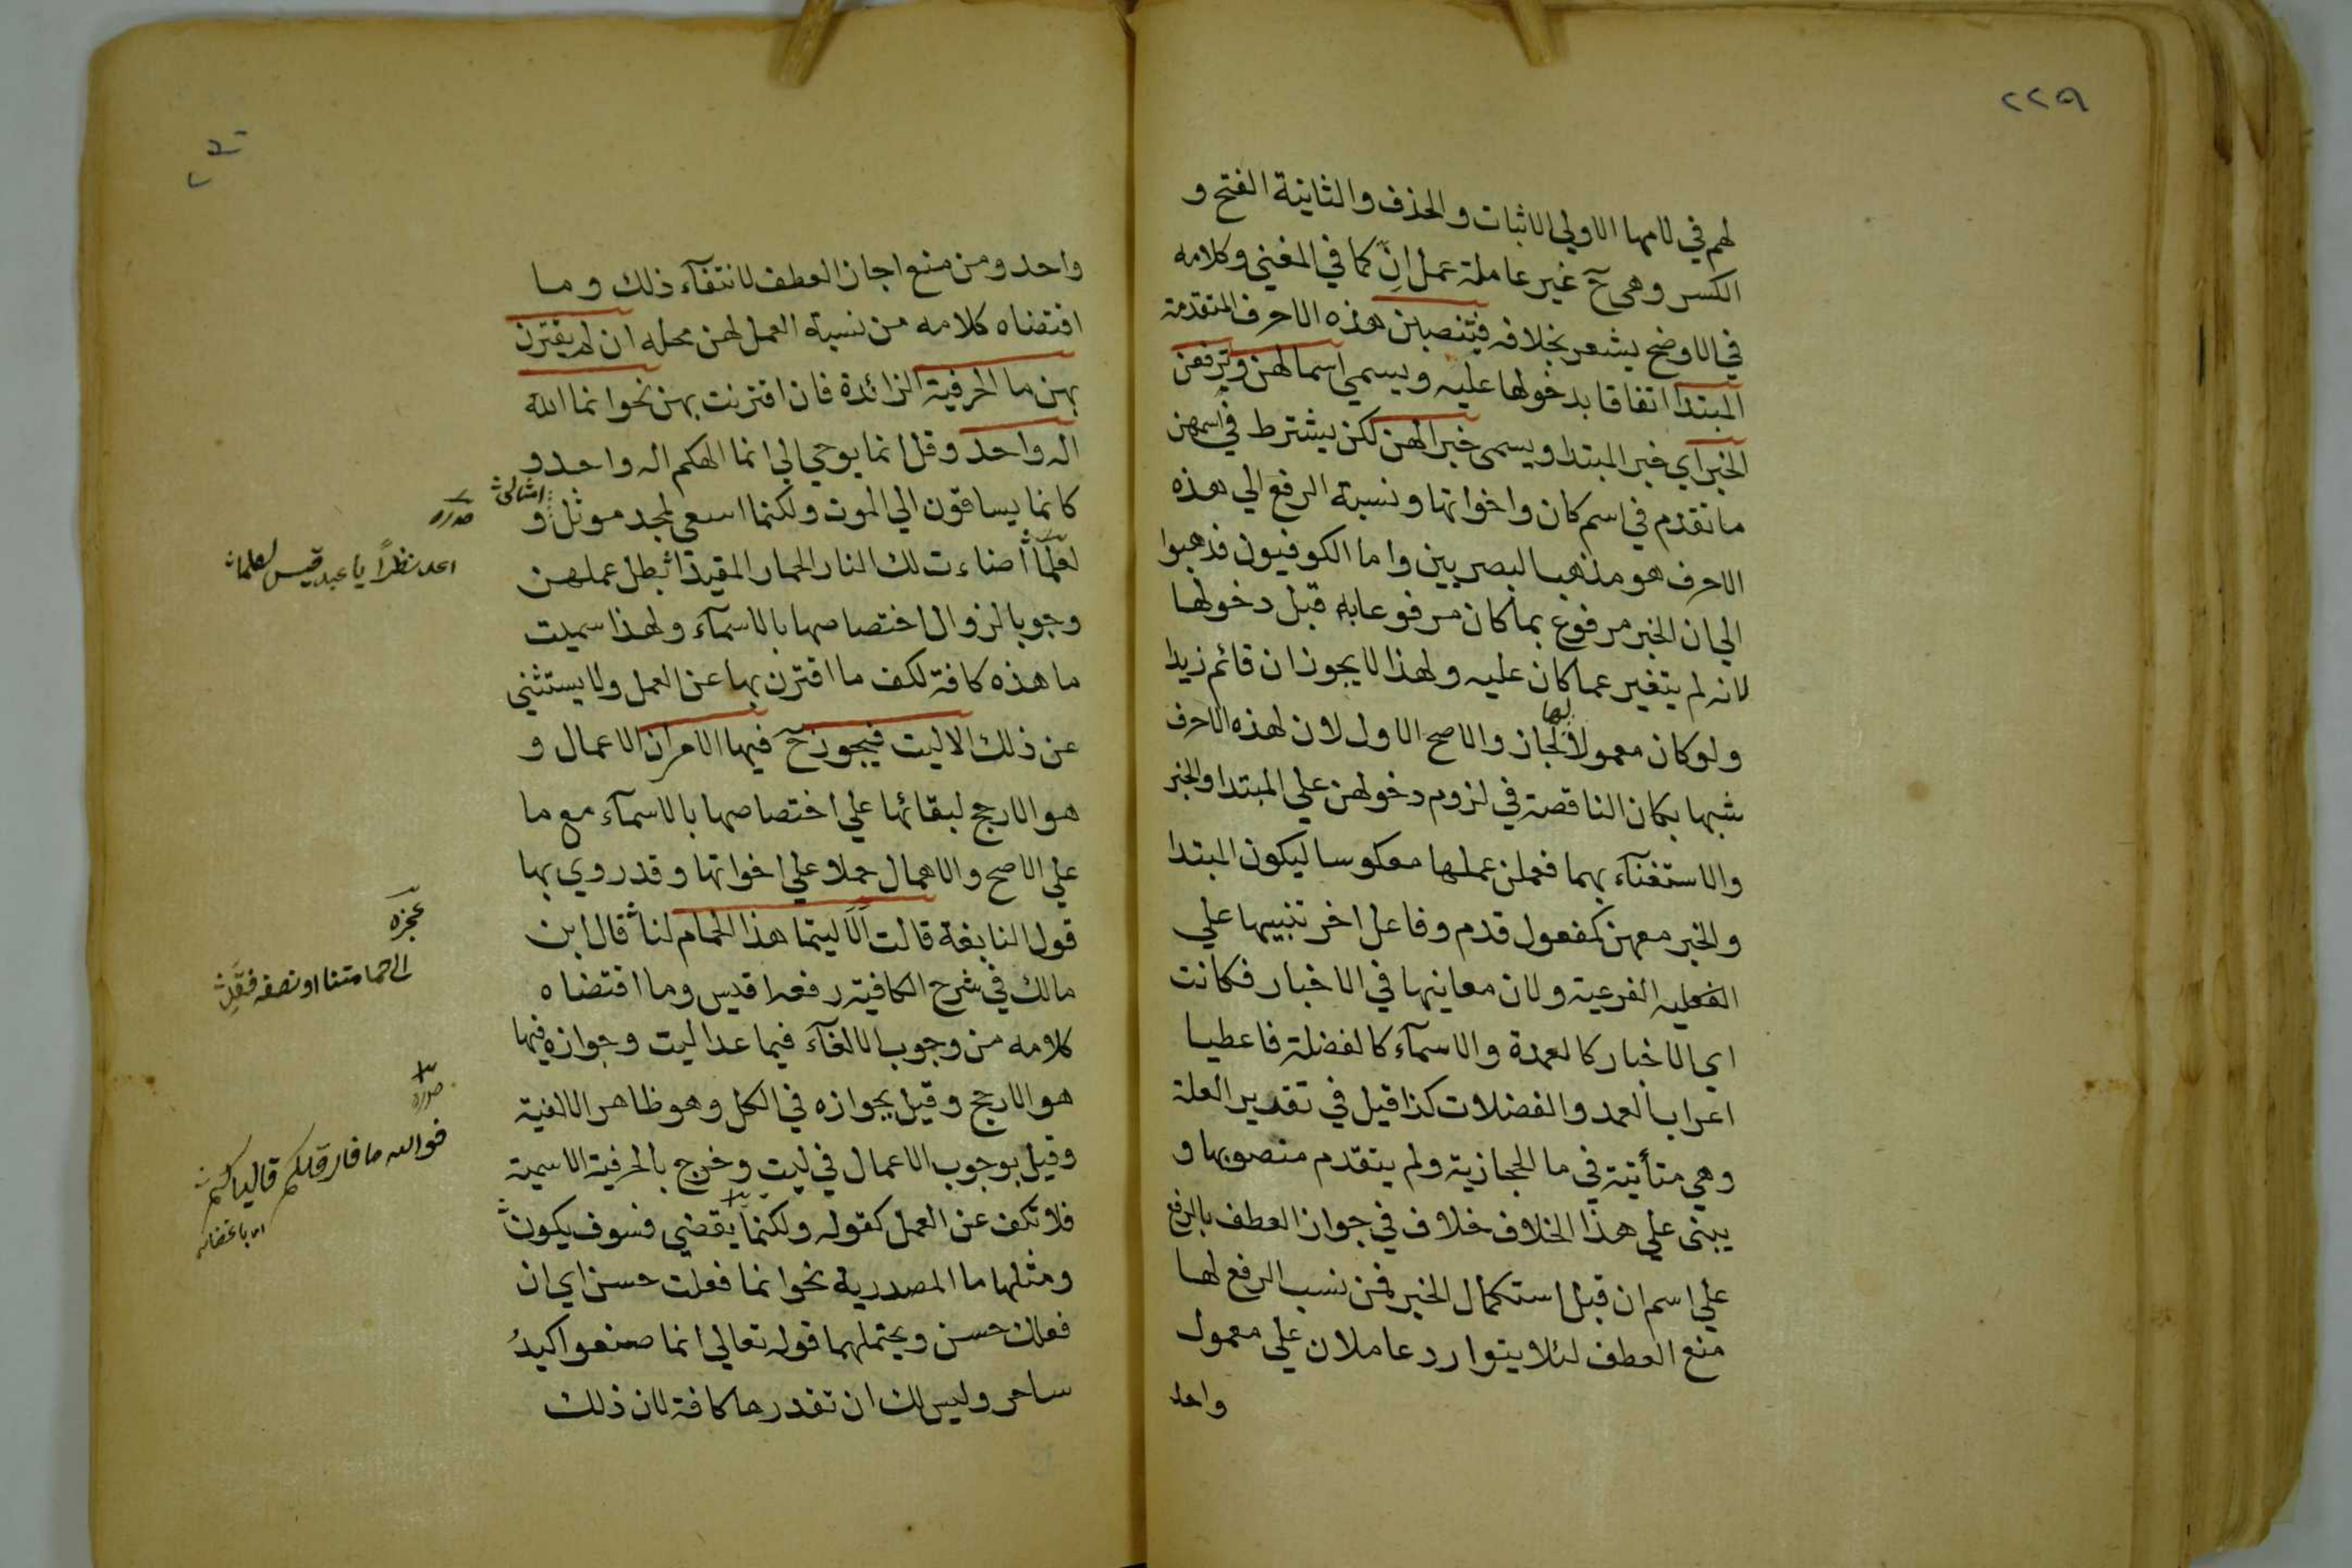 ٢٢٩
لهم في لامها الاولي الاثبات والحذف والثانية الفتح و
الكسر وهي ح غير عاملة عمل انّ كما في المغني وكلامه
في الاوضح يشعر بخلافه فتنصبن هذه الاحرف المتقدمة
المبتدا اتفاقا بدخولها عليه ويسمي اسما لهن وترفعن
الخبر اي خبر المبتدا ويسمى خبرا لهن لكن يشترط في اسمهن
ما تقدم في اسم كان واخواتها ونسبة الرفع الي هذه
الاحرف هو مذهب البصريين واما الكوفيون فذهبوا
الي ان الخبر مرفوع بما كان مرفوعا به قبل دخولها
لانه لم يتغير عما كان عليه ولهذا لا يجوز ان قائم زيدا
ولو كان معمولا لها لجاز والاصح الاول لان لهذه الاحرف
شبها بكان الناقصة في لزوم دخولهن علي المبتدا والخبر
والاستغنآء بهما فعملن عملها معكوسا ليكون المبتدا
والخبر معهن كمفعول قدم وفاعل اخر تنبيها علي
الفعليه الفرعية ولان معانيها في الاخبار فكانت
اي الاخبار كالعمدة والاسمآء كالفضلة فاعطيا
اعراب العمد والفضلات كذا قيل في تقدير العلة
وهي متأتية في ما الحجازية ولم يتقدم منصوبها و
يبنى علي هذا الخلاف خلاف في جواز العطف بالرفع
علي اسم ان قبل استكمال الخبر فمن نسب الرفع لها
منع العطف لئلا يتوارد عاملان علي معمول
واحد
واحد ومن منع اجاز العطف لانتفآء ذلك وما
اقتضاه كلامه من نسبة العمل لهن محله ان لم يقترن
بهن ما الحرفية الزائدة فان اقترنت بهن نحو انما الله
اله واحد وقل انما يوحي الي انما الهكم اله واحد و
كانما يساقون الي الموت ولكنما اسعي لمجد موثل و
امثالي
صدره
اعد نظرًا يا عبد قيس لعلما
لعلّما اضاءت لك النار الحمار المقيدا بطل عملهن
وجوبا لزوال اختصاصها بالاسمآء ولهذا سميت
ما هذه كافة لكف ما اقترن بها عن العمل ولا يستثني
عن ذلك الا ليت فيجوز ح فيها الامران الاعمال و
هو الارجح لبقائها علي اختصاصها بالاسمآء مع ما
علي الاصح والاهمال حملا علي اخواتها وقد روي بها
قول النابغة قالت الا ليتما هذا الحمام لنا قال ابن
عجزه
الى حمامتنا او نصفه فقدِ
مالك في شرح الكافية رفعه اقيس وما اقتضاه
كلامه من وجوب الالغآء فيما عدا ليت وجوازه فيها
هو الارجح وقيل بجوازه في الكل وهو ظاهر الالفية
وقيل بوجوب الاعمال في ليت وخرج بالحرفية الاسمية
فلا تكف عن العمل كقوله ولكنما يقضي فسوف يكون
صدره
فوالله ما فارقتكم قاليا لكم
ومثلها ما المصدرية نحو انما فعلت حسن اي ان
فعلك حسن ويحتملهما قوله تعالي انما صنعوا كيدُ
ساحر وليس لك ان تقدرها كافة لان ذلك